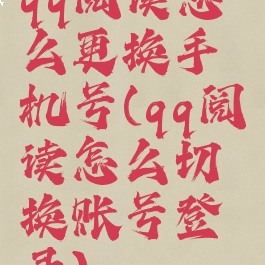 qq阅读怎
么更换手
机号(qq阅
读怎么切
换账号登
录)